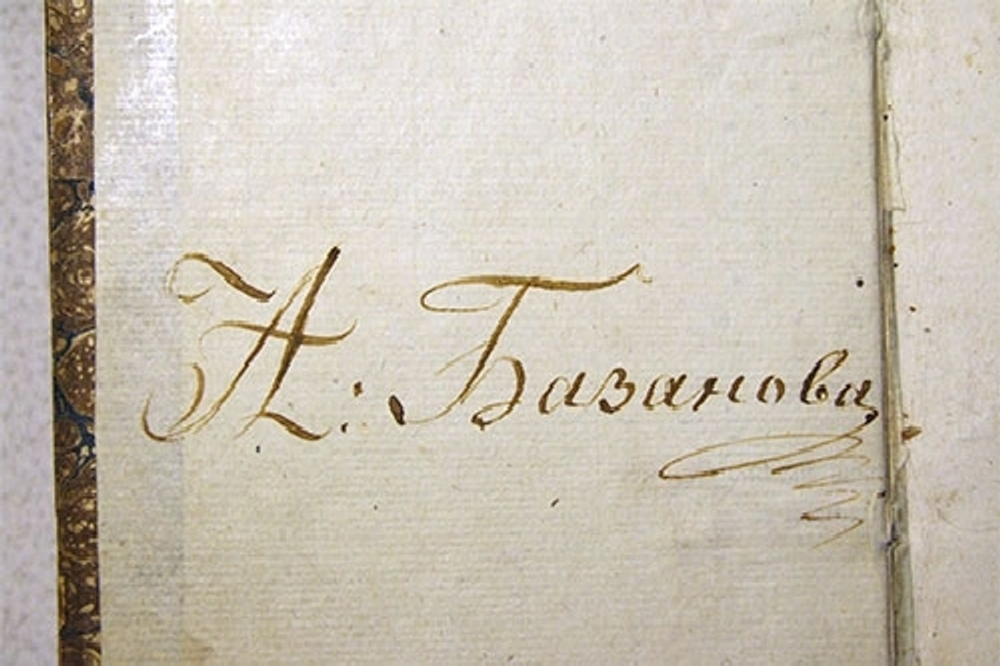 Н: Базанова